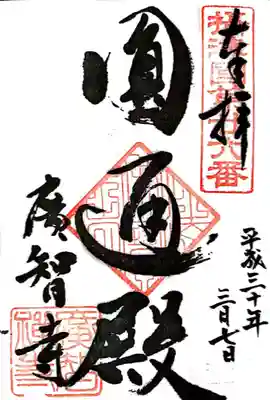 奉拝
平成三十年
三月七日
圓通殿
廣智寺